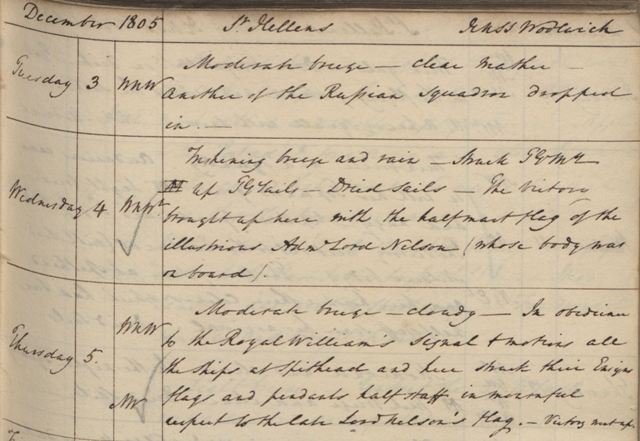 December 1805 St Hellens HMSS Woolwich
Moderate breeze — clear weather —
Tuesday 3 WNW Another of the Russian Squadron dropped
in. —
Freshening breeze and rain — Struck TGtMts
up TGSails — Dried sails — The Victory
Wednesday 4 brought up here with the halfmast flag of the
illustrious Admr Lord Nelson (whose body was
on board).
Moderate breeze — cloudy — In obedience
WNW to the Royal William's signal & motions all
Thursday 5. the ships at Spithead and here struck their Ensigns
NW flags and pendants half staff in mournful
respect to the late Lord Nelson's flag. — Victory went up